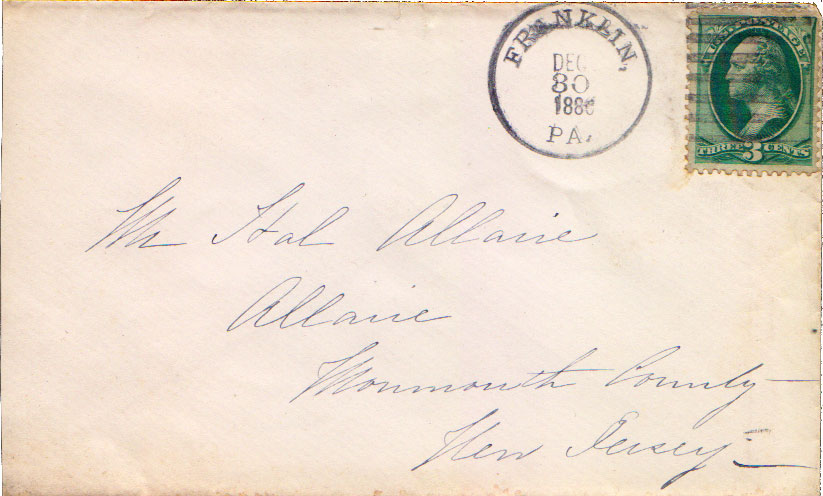 FRANKLIN,
DEC
30
PA.
THREE 3 CENTS
Mr Hal Allaire
Allaire
Monmouth County
New Jersey